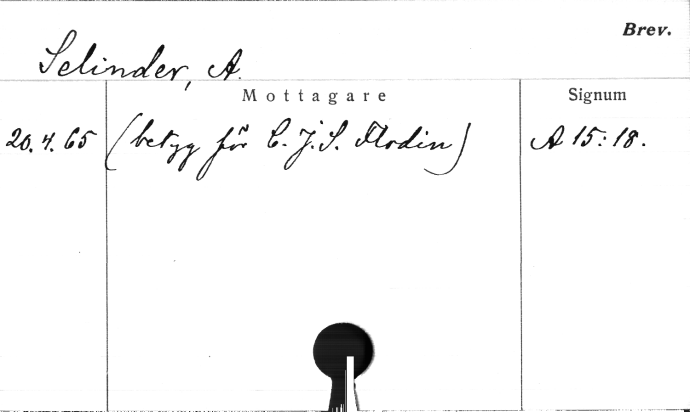 Brev.
Selinder, A.
Mottagare
Signum
20.4.65 (betyg för C.J.S. Flodin) A 15:18.